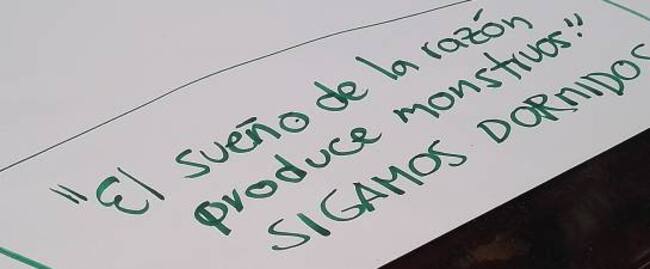 "El sueño de la razón
produce monstruos."
SIGAMOS DORMIDOS